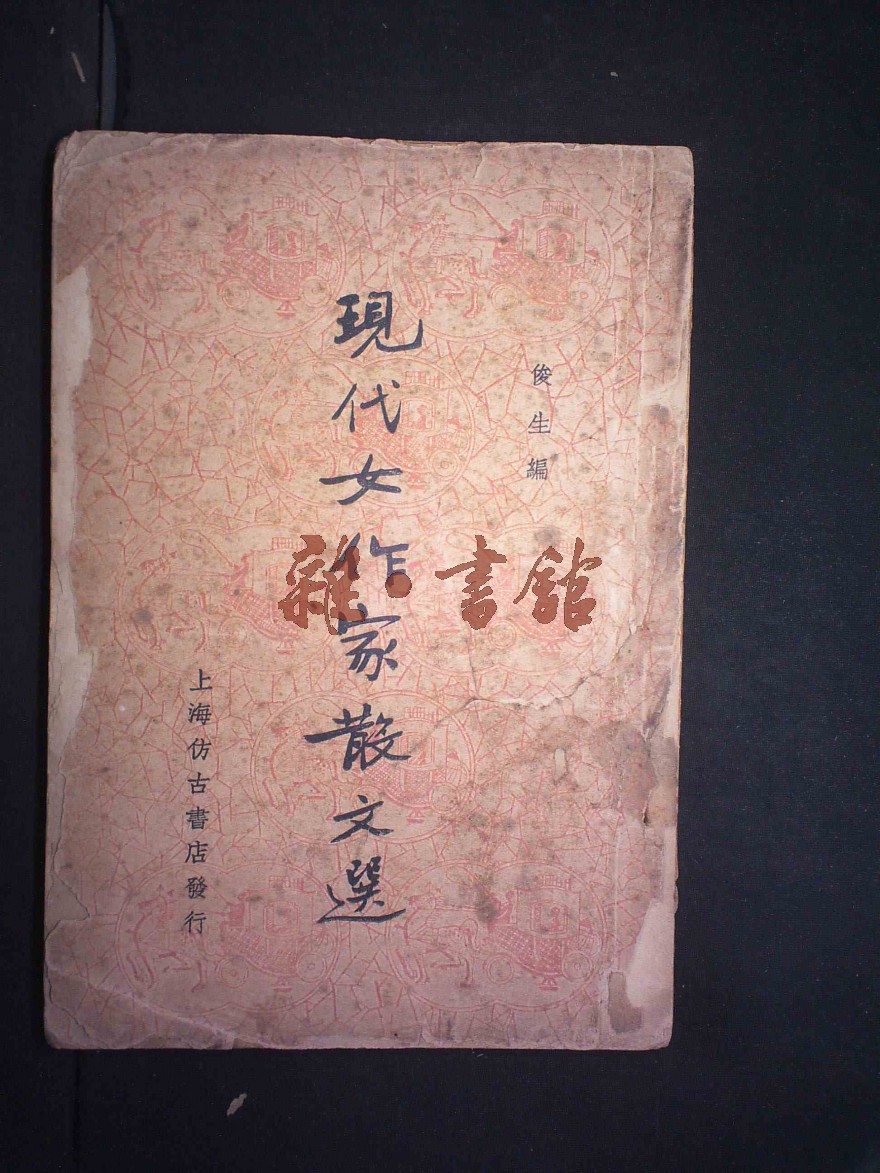 俊生編
現代女作家散文選
上海仿古書店發行
雜·書館